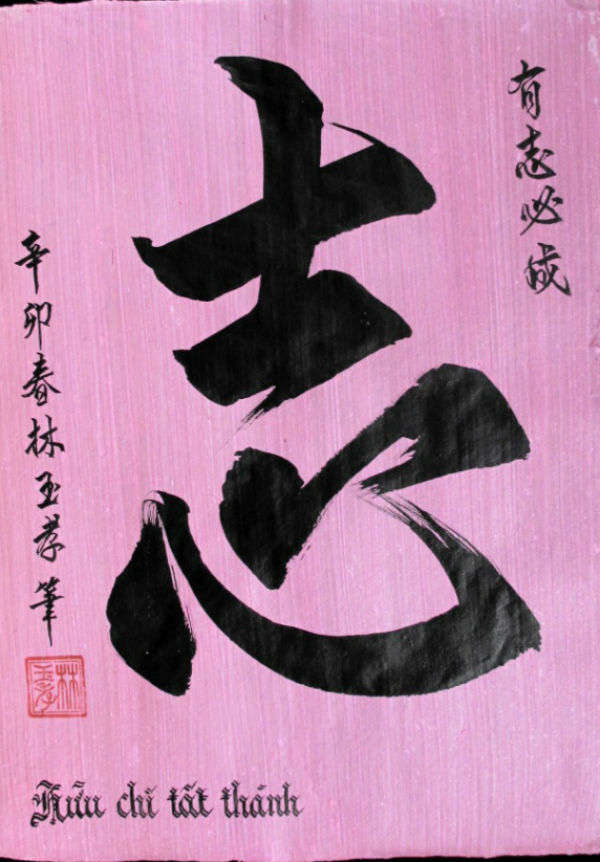 有志必成
志
辛卯春林玉孝筆
林玉孝
Hữu chí tất thành